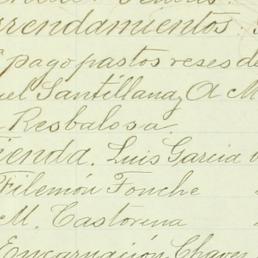 rrendamientos.
pago pastos reses de
uel Santillana, A M
Resbalosa.
ienda. Luis Garcia
Filemón Fonche
M. Castorena
Encarnación Chavez